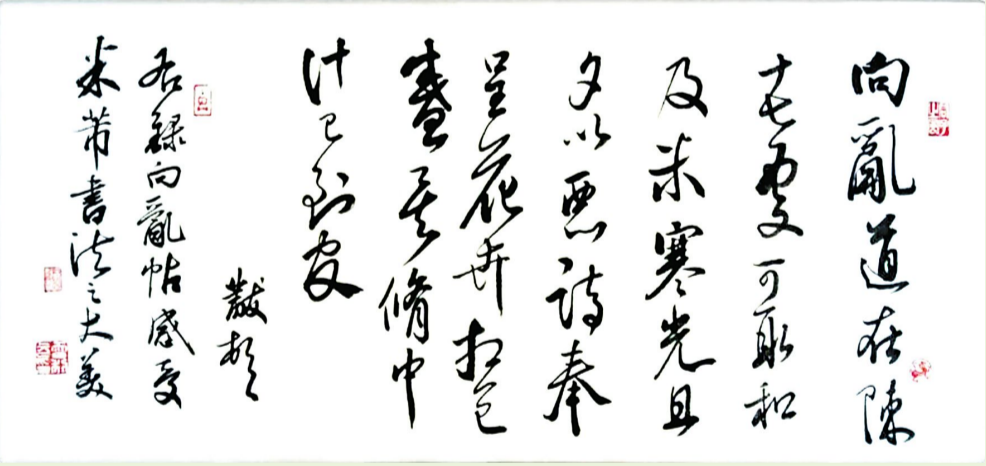 向亂道在陳
十七處可取和
及米寒光旦
夕以惡詩奉
呈花卉想已
盛矣脩中
計已到官
黻頓首
右錄向亂帖感受
米芾書法之大美